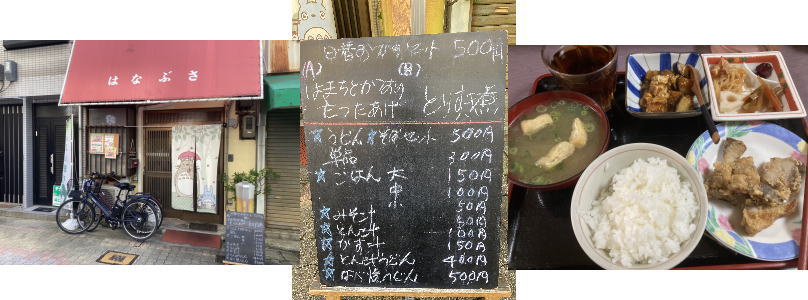 はなぶさ
日替おかずセット 500円
(A) (B)
はまちとかずのり
たつたあげ とりす煮
☆うどん☆そばセット 500円
単品 300円
☆ごはん 大 150円
中 100円
小 50円
☆みそ汁 50円
☆とん汁 100円
☆かす汁 150円
☆とんじるうどん 400円
☆なべ焼うどん 500円